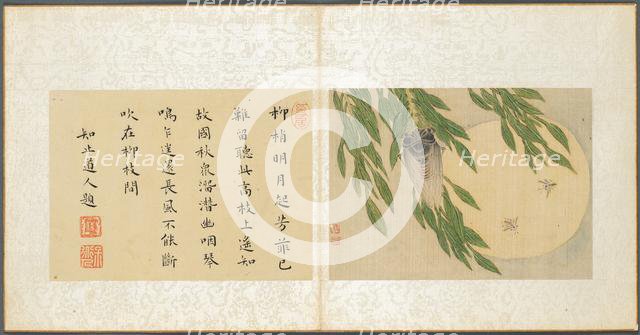 柳梢明月起芳菲已
難留聽此高枝上遙知
故國秋泉溜潛幽咽琴
鳴乍往還長風不能斷
吹在柳枝間
知止道人題
Heritage
Heritage
Heritage
Heritage
Heritage
Heritage
Heritage
Heritage